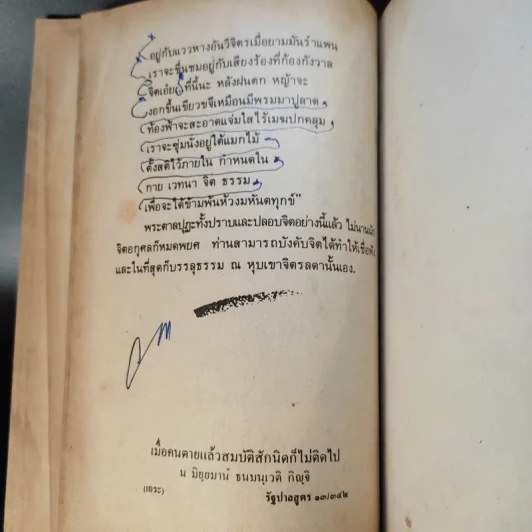 อยู่กับแววหางอันวิจิตรเมื่อยามมันรำแพน
เราจะชื่นชมอยู่กับเสียงร้องที่ก้องกังวาล
จิตเอ๋ย ที่นี้นะ หลังฝนตก หญ้าจะ
งอกขึ้นเขียวขจีเหมือนมีพรมมาปูลาด
ท้องฟ้าจะสะอาดแจ่มใสไร้เมฆปกคลุม
เราจะซุ่มนั่งอยู่ใต้แมกไม้
ตั้งสติไว้ภายใน กำหนดใน
กาย เวทนา จิต ธรรม
เพื่อจะได้ข้ามพ้นห้วงมหันตทุกข์"
พระตาลปุฏะทั้งปราบและปลอบจิตอย่างนี้แล้ว ไม่นานนัก
จิตอกุศลก็หมดพยศ ท่านสามารถบังคับจิตได้ทำให้เชื่อฟัง
และในที่สุดก็บรรลุธรรม ณ หุบเขาจิตรลดานั้นเอง.
เมื่อคนตายแล้วสมบัติสักนิดก็ไม่ติดไป
น มิยฺยมานํ ธนมนฺเวติ กิญฺจิ
(เถระ) รัฐปาลสูตร ๑๓/๓๔๒